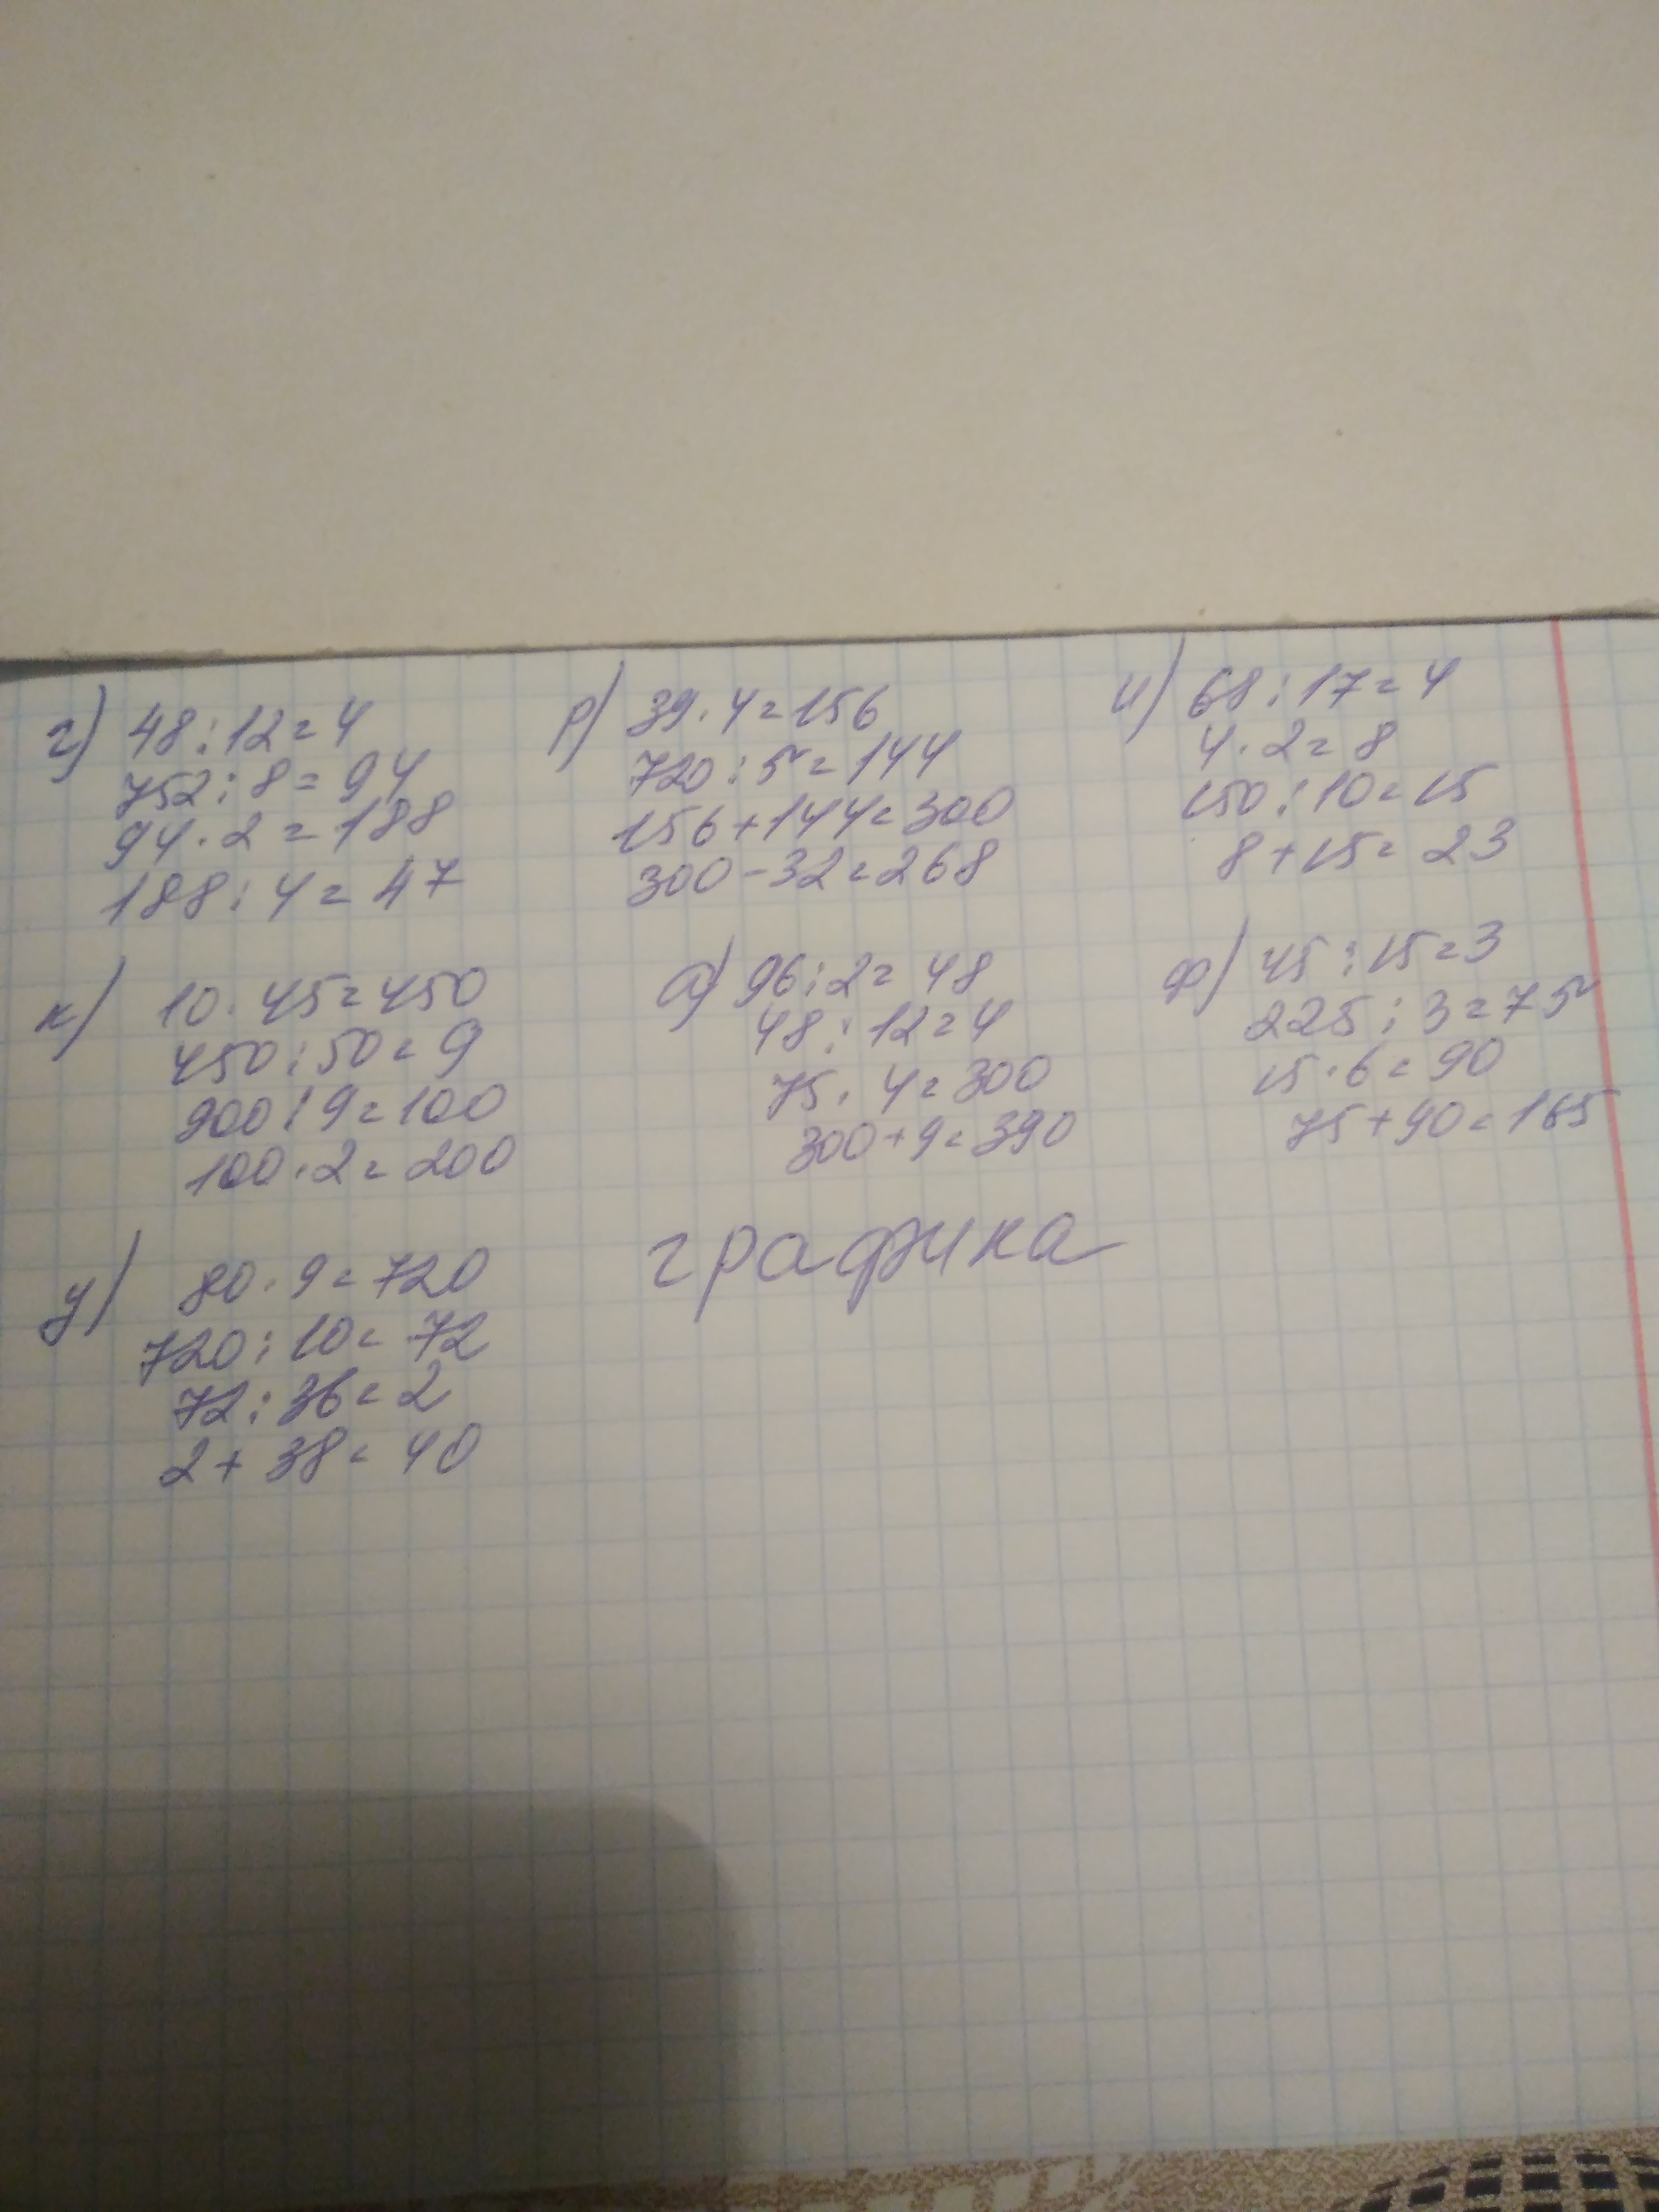 г) 48:12=4
752:8=94
94·2=188
188:4=47
р) 39·4=156
720:5=144
156+144=300
300-32=268
и) 68:17=4
4·2=8
150:10=15
8+15=23
к) 10·45=450
450:50=9
900:9=100
100·2=200
а) 96:2=48
48:12=4
75·4=300
300+9=390
ф) 45:15=3
225:3=75
15·6=90
75+90=165
у) 80·9=720
720:10=72
72:36=2
2+38=40
графика